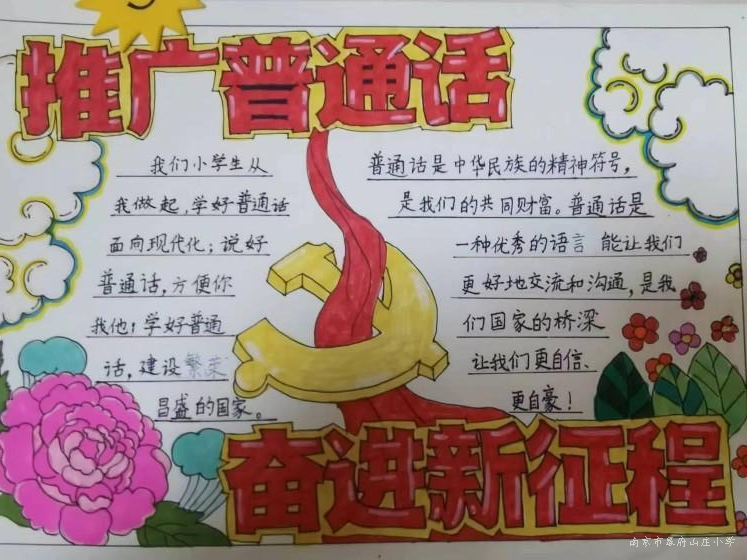 推广普通话
我们小学生从
我做起,学好普通话
面向现代化;说好
普通话,方便你
我他!学好普通
话,建设繁荣
昌盛的国家。
普通话是中华民族的精神符号,
是我们的共同财富。普通话是
一种优秀的语言 能让我们
更好地交流和沟通,是我
们国家的桥深
让我们更自信、
更自豪!
奋进新征程
南京市翠府山庄小学